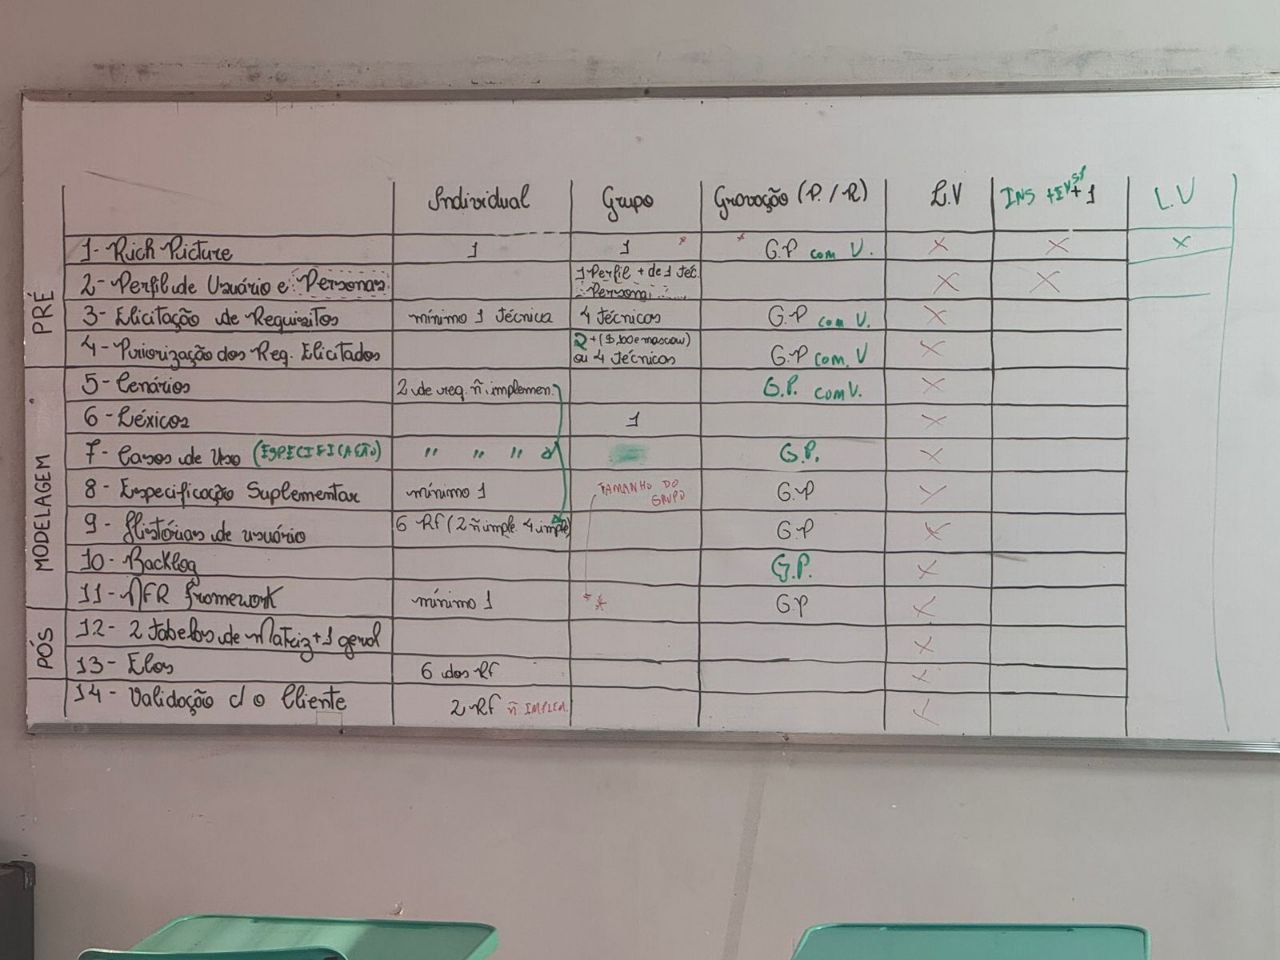 Individual Grupo Gravação (P./R) L.V INS +EV + 1 L.V
PRÉ
1- Rich Picture 1 1 * * G.P com V. X X X
2- Perfil de Usuário e Personas 1 Perfil + de 1 téc. X X
Persona
3- Elicitação de Requisitos mínimo 1 técnica 4 técnicas G.P com V. X
4- Priorização dos Req. Elicitados 2 + ($100 e moscow) G.P com V X
ou 4 técnicas
MODELAGEM
5- Cenários 2 de req. ñ. implemen. G.P. com V. X
6- Léxicos 1 X
7- Casos de Uso (ESPECIFICAÇÃO) " " " G.P. X
8- Especificação Suplementar mínimo 1 TAMANHO DO G.P X
GRUPO
9- Histórias de usuário 6 RF (2 ñ imple 4 imple) G.P X
10- Backlog G.P. X
11- NFR Framework mínimo 1 ** G.P X
PÓS
12- 2 tabelas de Matriz + 1 geral X
13- Elos 6 dos RF X
14- Validação c/ o Cliente 2 RF ñ IMPLEM. X